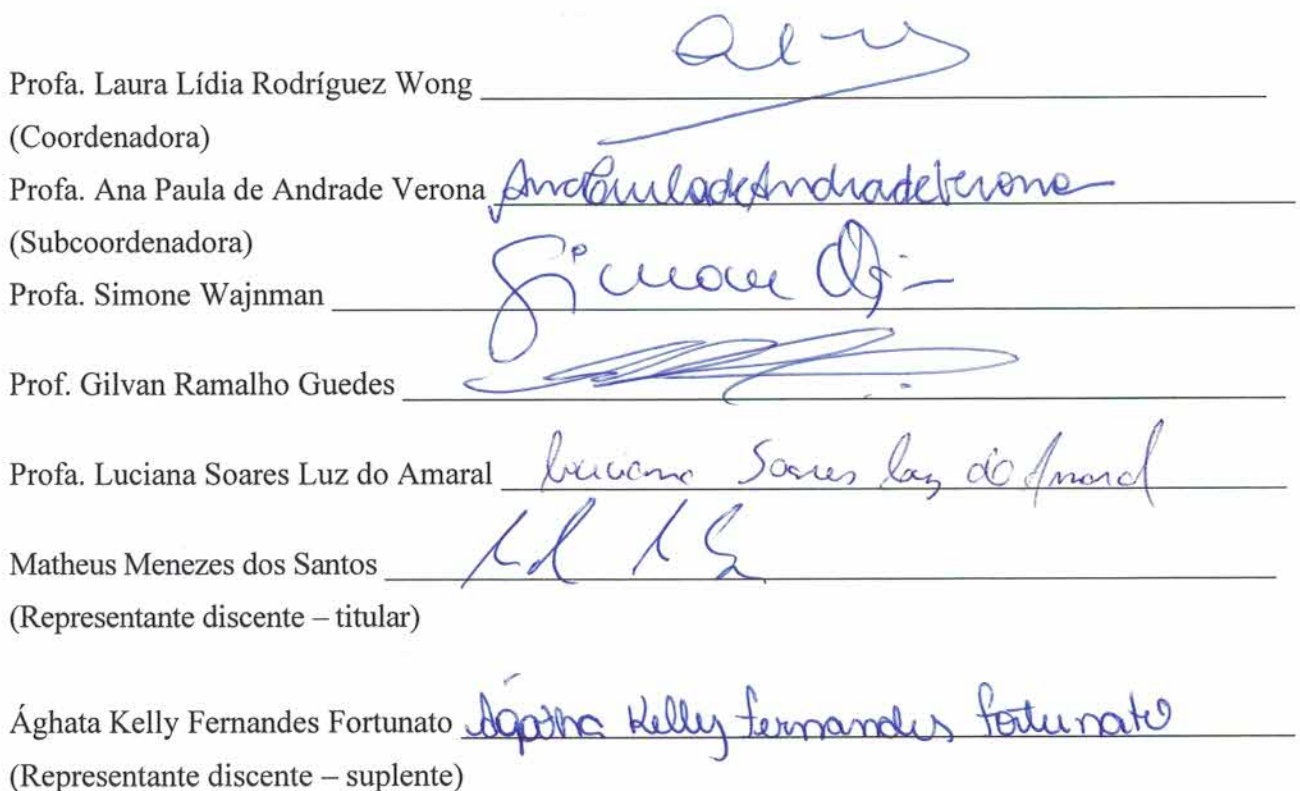 Profa. Laura Lídia Rodríguez Wong
(Coordenadora)
Profa. Ana Paula de Andrade Verona Ana Paula de Andrade Verona
(Subcoordenadora)
Profa. Simone Wajnman Simone
Prof. Gilvan Ramalho Guedes
Profa. Luciana Soares Luz do Amaral Luciana Soares Luz do Amaral
Matheus Menezes dos Santos
(Representante discente – titular)
Ághata Kelly Fernandes Fortunato Ágatha Kelly Fernandes Fortunato
(Representante discente – suplente)